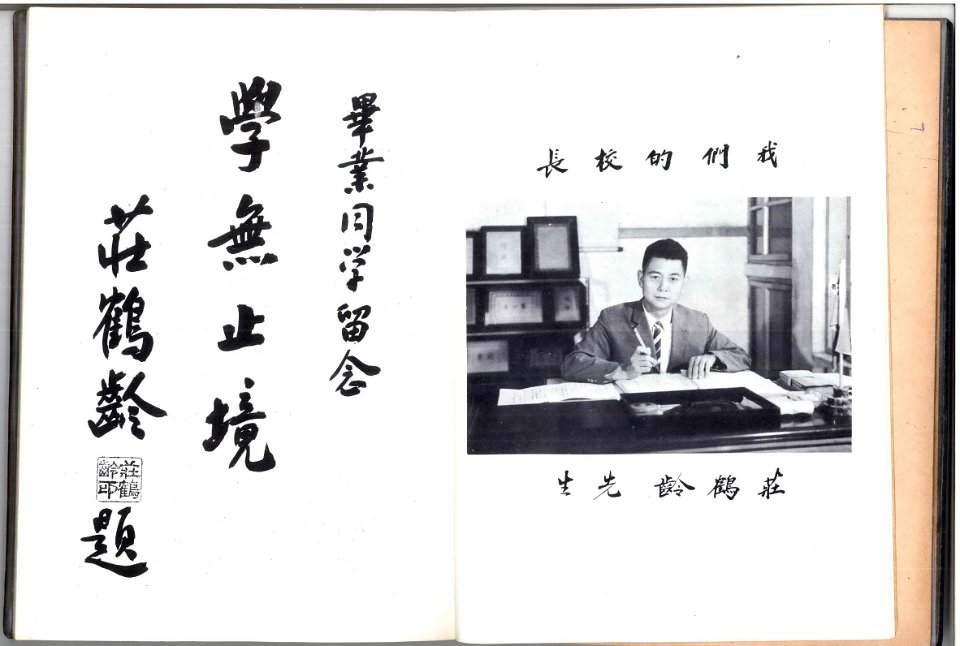 我們的校長
莊鶴齡先生
畢業同学留念
學無止境
莊鶴齡
莊鶴
齡印
題